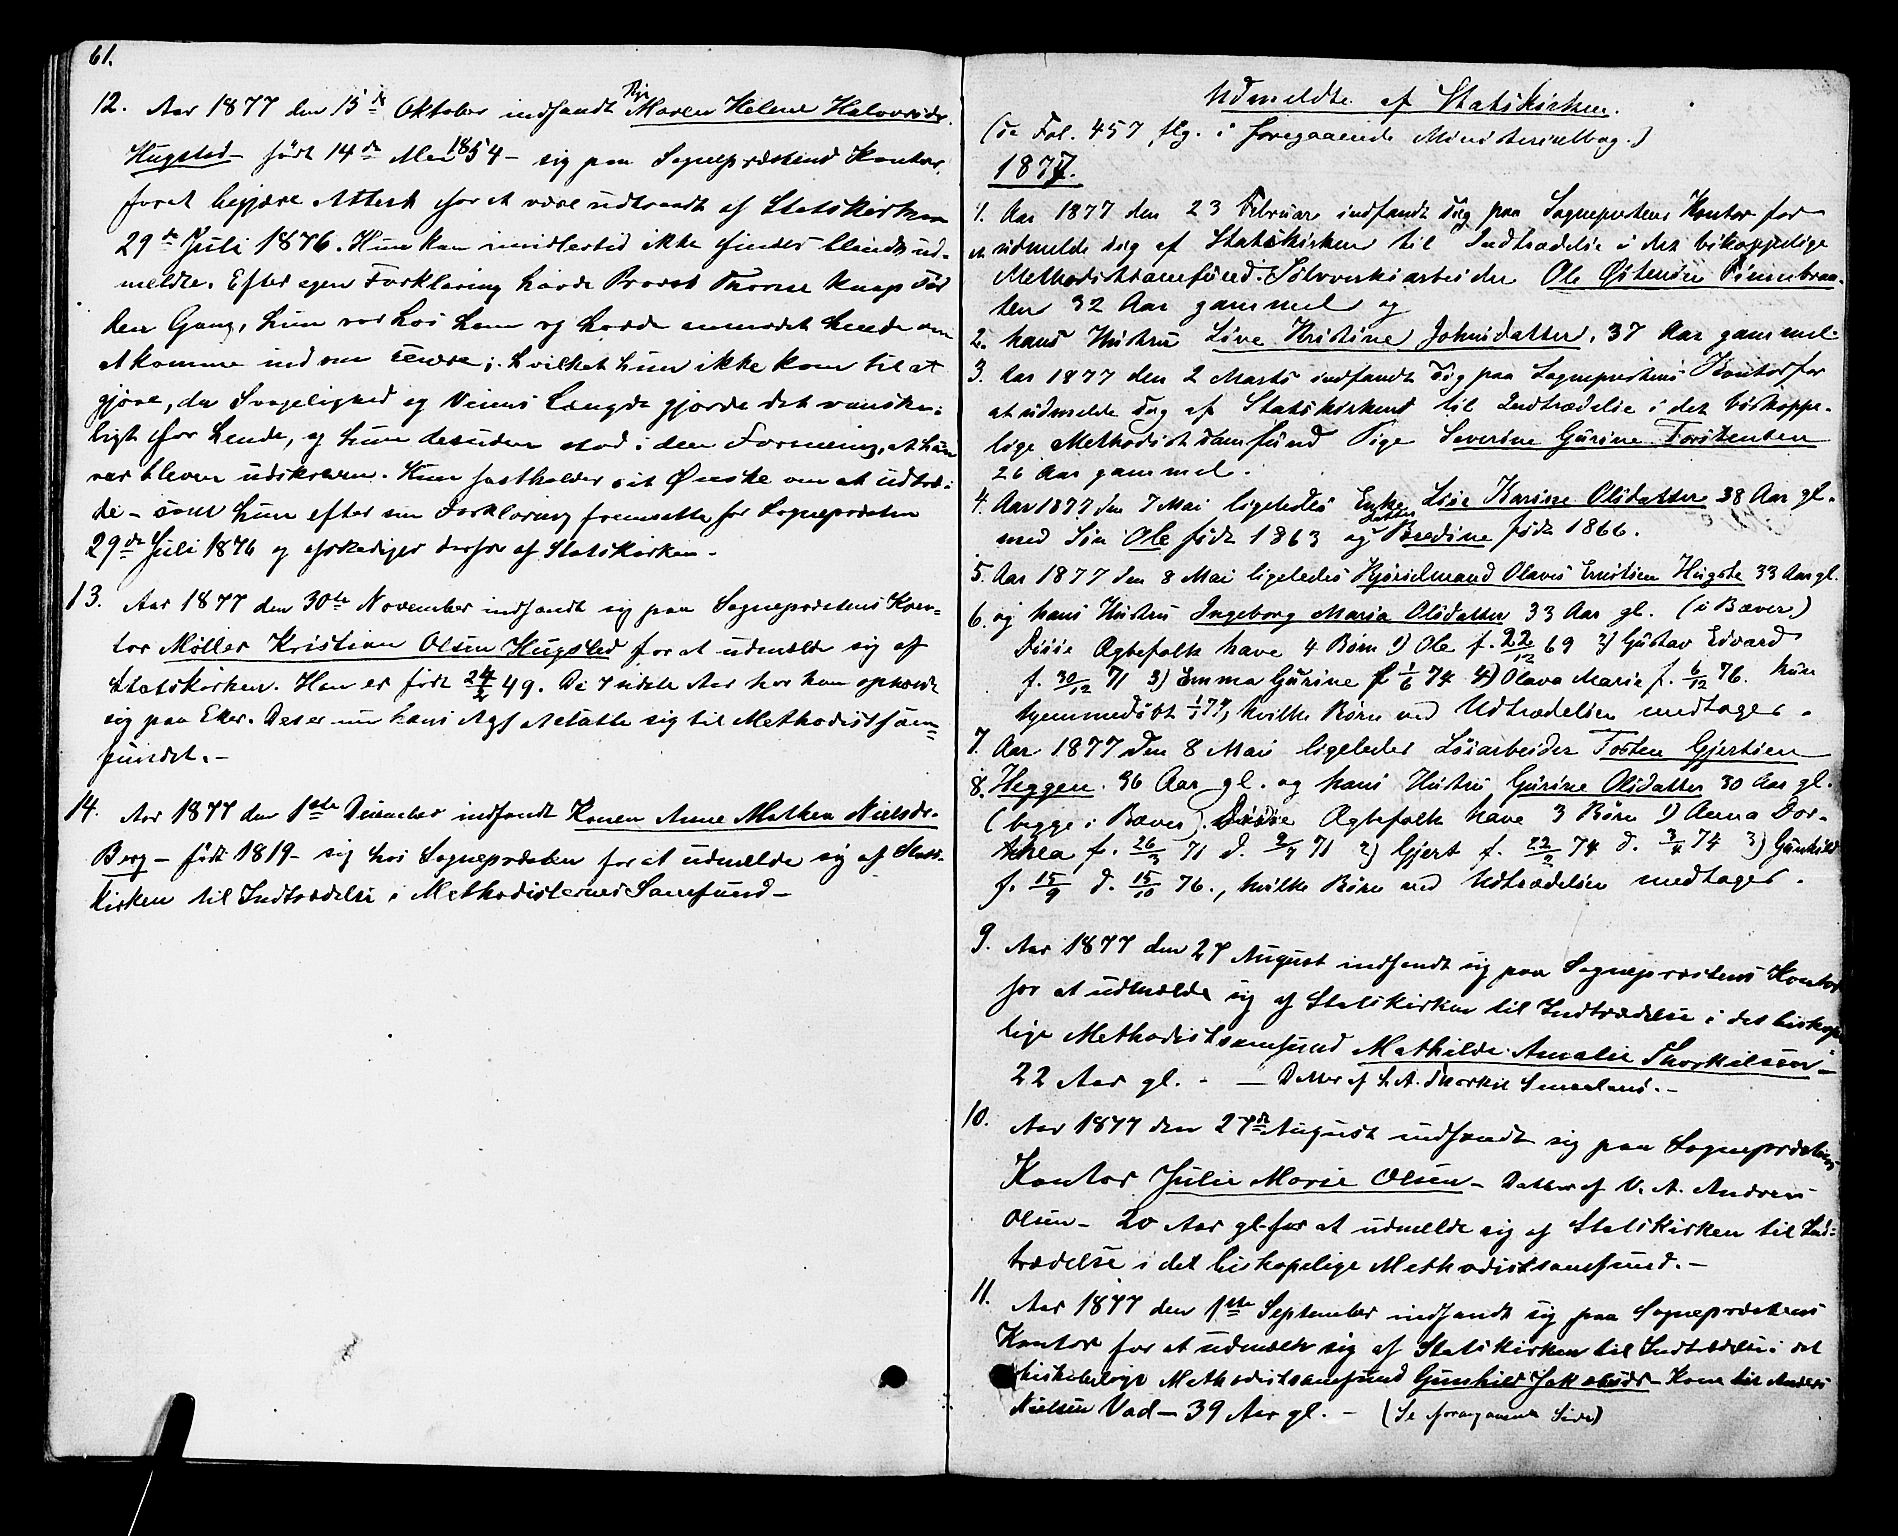 61.
12. Aar 1877 den 15de Oktober indfandt Pige Maren Helene Halvorsdr.
Hugstad – født 14de Mai 1854 – sig paa Sognepræstens Kontor
for at begjære Attest for at være udtraadt af Statskirken
29de Juli 1876. Hun kan imidlertid ikke findes blandt ud-
meldte. Efter egen Forklaring havde Provst Thorne knap Tid
den Gang, hun var hos ham og havde anmodet hende om
at komme ind om senere; hvilket hun ikke kom til at
gjøre, da Svagelighed og Veiens Længde gjorde det vanske-
ligt for hende, og hun desuden stod i den Formening, at hun
var bleven udskreven. Hun fastholder sit Ønske om at udtræ-
de – som hun efter sin Forklaring fremsatte for Sognepræsten
29de Juli 1876 og afskediges derfor af Statskirken. –
13. Aar 1877 den 30te November indfandt sig paa Sognepræstens Kon-
tor Møller Kristian Olsen Hugstad for at udmelde sig af
Statskirken. Han er født 24/2 49. De 7 sidste Aar har han opholdt
sig paa Eker. Des er nu hans Agt at slutte sig til Methodistsam-
fundet. –
14. Aar 1877 den 1ste December indfandt Konen Anne Mathea Nielsdr.
Berg – født 1819 – sig hos Sognepræsten for at udmelde sig af Stats-
kirken til Indtrædelse i Methodisternes Samfund –
Udmeldte af Statskirken.
(se Fol. 457 flg. i foregaaende Ministerialbog.)
1877.
1. Aar 1877 den 23 Februar indfandt sig paa Sogneprestens Kontor for
at udmelde sig af Statskirken til Indtrædelse i det biskoppelige
Methodistsamfund Sølvverksarbeider Ole Østensen
ten 32 Aar gammel og
2. hans Hustru Live Kristine Johnsdatter, 37 Aar gammel
3. Aar 1877 den 2 Marts indfandt sig paa Sogneprestens Kontor for
at udmelde sig af Statskirken til Indtrædelse i det biskoppe-
lige Methodistsamfund Pige Severine Gurine Torstensen
26 Aar gammel.
4. Aar 1877 den 7 Mai ligeledes Enke Lise Karine Olsdatter 38 Aar gl.
med Søn Ole født 1863 og Datter Bredine født 1866.
5. Aar 1877 den 8 Mai ligeledes Kjørselmand Olaves Hugste 33 Aar gl.
6. og hans Hustru Ingeborg Maria Olsdatter 33 Aar gl. (i Bæver)
Disse Ægtefolk have 4 Børn 1) Ole f. 22/12 69 2) Gustav Edvard
f. 30/12 71 3) Emma Gurine f 1/6 74 4) Olava Marie f. 6/12 76. hun
hjemmedøbt 1/1 77, hvilke Børn ved Udtrædelsen medtages.
7. Aar 1877 den 8 Mai ligeledes Løsarbeider Tosten Gjertsen
8. Heggen. 36 Aar gl. og hans Hustru Gurine Olsdatter 30 Aar gl.
(begge i Bæver). Disse Ægtefolk have 3 Børn 1) Anna Dor-
thea f. 26/3 71 d. 9/4 71 2) Gjert f. 22/2 74 d. 3/4 74 3) Gunhild
f. 15/9 d. 15/10 76., hvilke Børn ved Udtrædelsen medtages.
9. Aar 1877 den 27 August indfandt sig paa Sognepræstens Kontor
for at udmelde sig af Statskirken til Indtrædelse i det biskope-
lige Methodistsamfund Mathilde Amalie Thorkilsen –
22 Aar gl. – – Datter af S. A. Thorkil Smaaland. –
10. Aar 1877 den 27de August indfandt sig paa Sognepræstens
Kontor Julie Marie Olsen – Datter af V. A. Andreas
Olsen – 20 Aar gl. for at udmelde sig af Statskirken til Ind-
trædelse i det biskopelige Methodistsamfund. –
11. Aar 1877 den 1ste September indfandt sig paa Sognepræstens
Kontor for at udmelde sig af Statskirken til Indtrædelse i det
biskopelige Methodistsamfund Gunhild Jakobsdr – Kone til Anders
Nielsen Vad – 39 Aar gl. – (Se foregaaende Side)